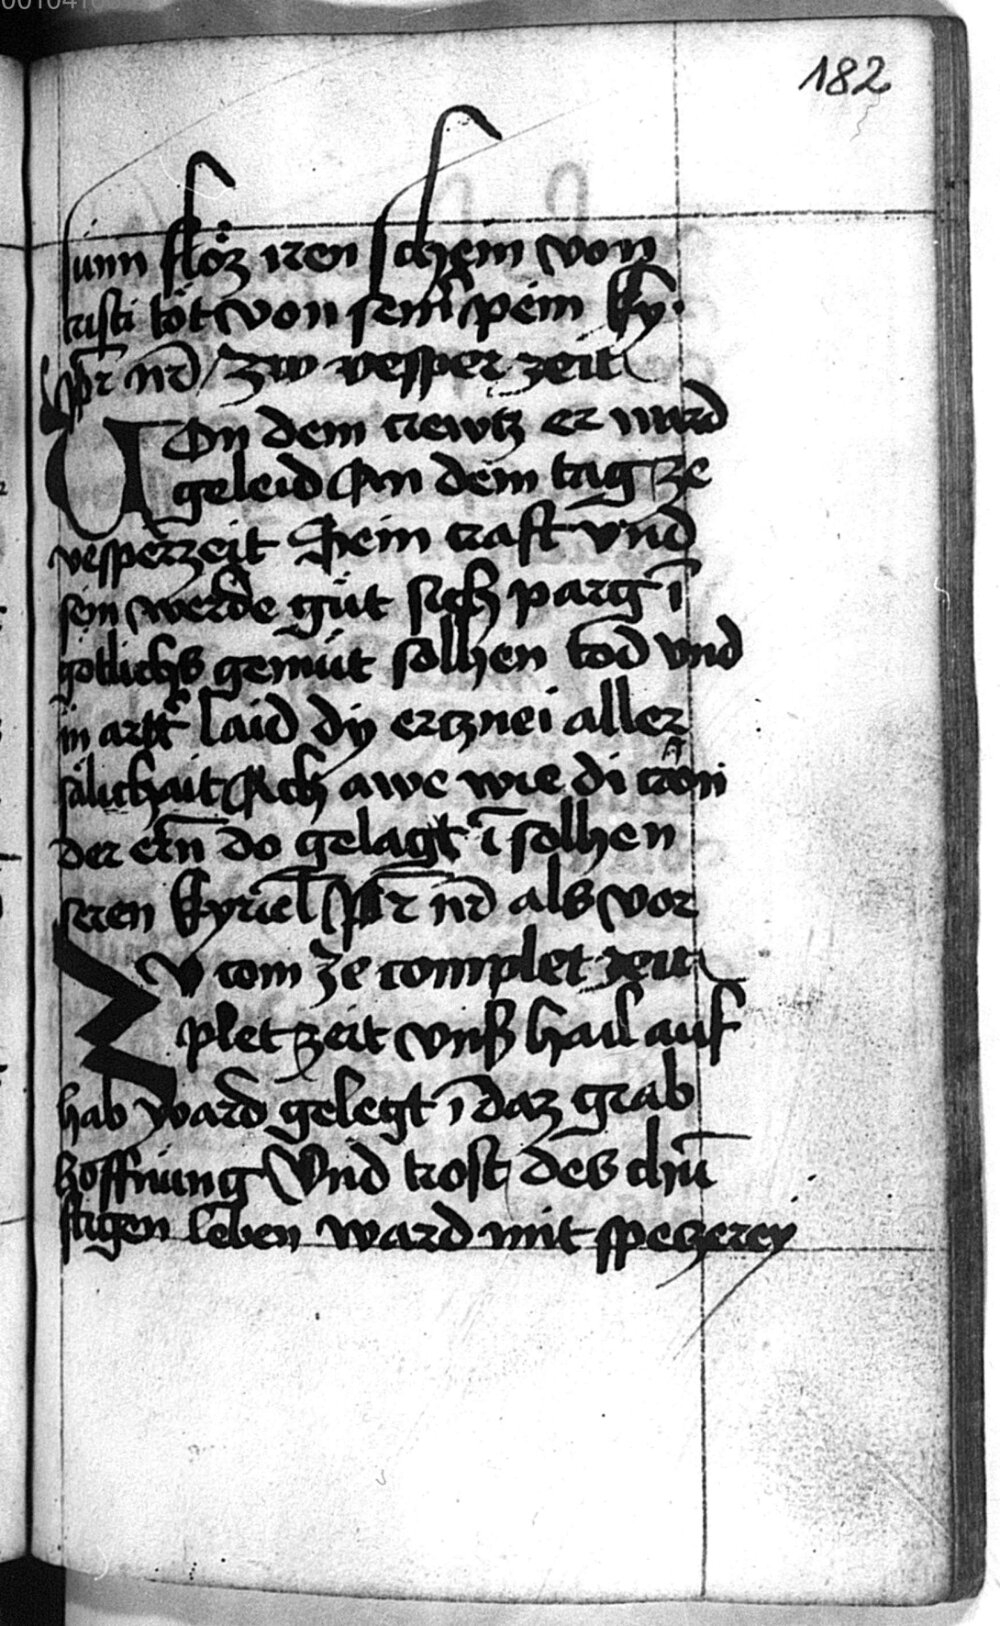 182
sunn sloͤz iren schein von
cristi töt von seīr pein ky·
Pr̄ nr̄ / zw vesper zeit
Von dem crewtz er ward
geleid An dem tag ze
vesperzeit Sein craft vnd
sein werde güt sich parg ī
götlichs gemüt solhen tod vnd
in laid dy ertznei aller
sälichait Ach awe wie di cron
der ern̄ do gelagt ī solhen
seren kyriel Pr̄ nr̄ als vor
Zv com ze complet zeit
plet zeit vnß hail auf
hab ward gelegt ī daz grab
hoffnung Vnd trost des chū
ftigen leben ward mit speczerey